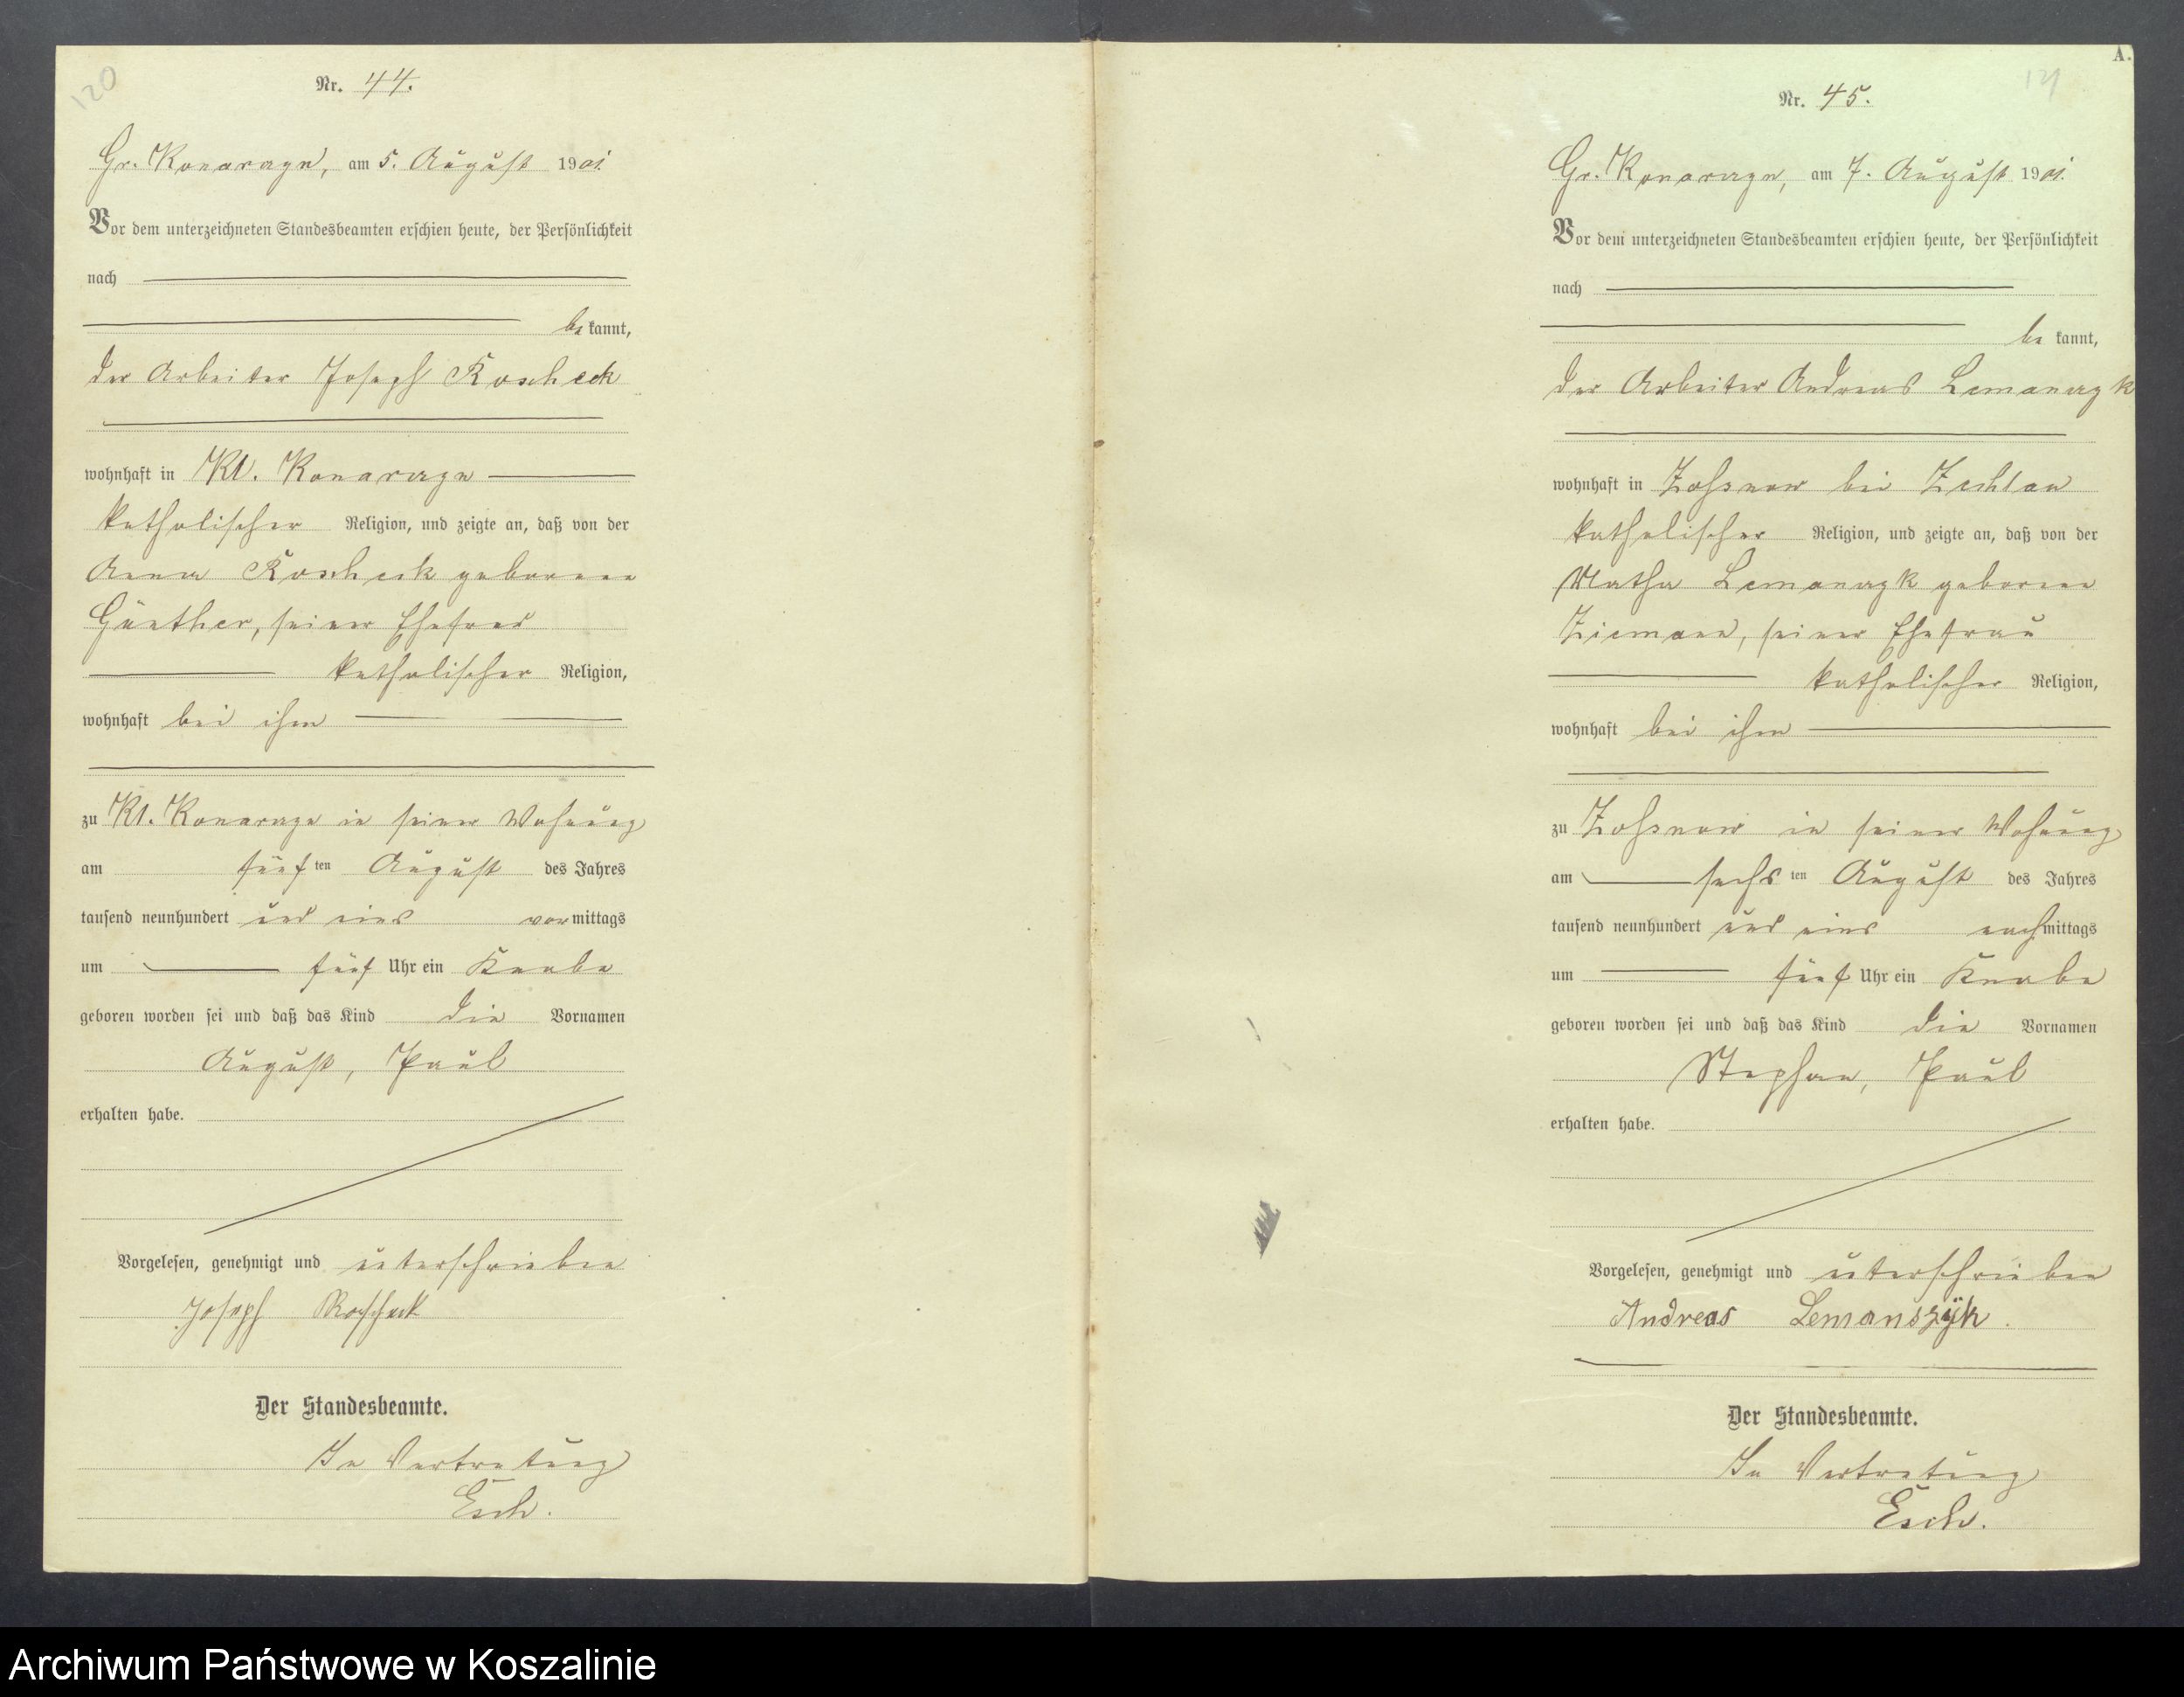 120
Nr. 44.
Gr. Konarzyn, am 5. August 1901.
Vor dem unterzeichneten Standesbeamten erschien heute, der Persönlichkeit
nach
be kannt,
der Arbeiter Joseph Roscheck
wohnhaft in Kl. Konarzyn
katholischer Religion, und zeigte an, daß von der
Anna Roscheck geborene
Günther, seiner Ehefrau
katholischer Religion,
wohnhaft bei ihm
zu Kl. Konarzyn in seiner Wohnung
am fünf ten August des Jahres
tausend neunhundert und eins vor mittags
um fünf Uhr ein Knabe
geboren worden sei und daß das Kind die Vornamen
August, Paul
erhalten habe.
Vorgelesen, genehmigt und unterschrieben
Joseph Roscheck
Der Standesbeamte.
In Vertretung
Esch.
A.
121
Nr. 45.
Gr. Konarzyn, am 7. August 1901.
Vor dem unterzeichneten Standesbeamten erschien heute, der Persönlichkeit
nach
be kannt,
der Arbeiter Andreas Lemanczyk
wohnhaft in Zossnow bei Zechlau
katholischer Religion, und zeigte an, daß von der
Matha Lemanczyk geborene
Ziemann, seiner Ehefrau
katholischer Religion,
wohnhaft bei ihm
zu Zossnow in seiner Wohnung
am sechs ten August des Jahres
tausend neunhundert und eins nach mittags
um fünf Uhr ein Knabe
geboren worden sei und daß das Kind die Vornamen
Stephan, Paul
erhalten habe.
Vorgelesen, genehmigt und unterschrieben
Andreas Lemanszÿk.
Der Standesbeamte.
In Vertretung
Esch.
Archiwum Państwowe w Koszalinie